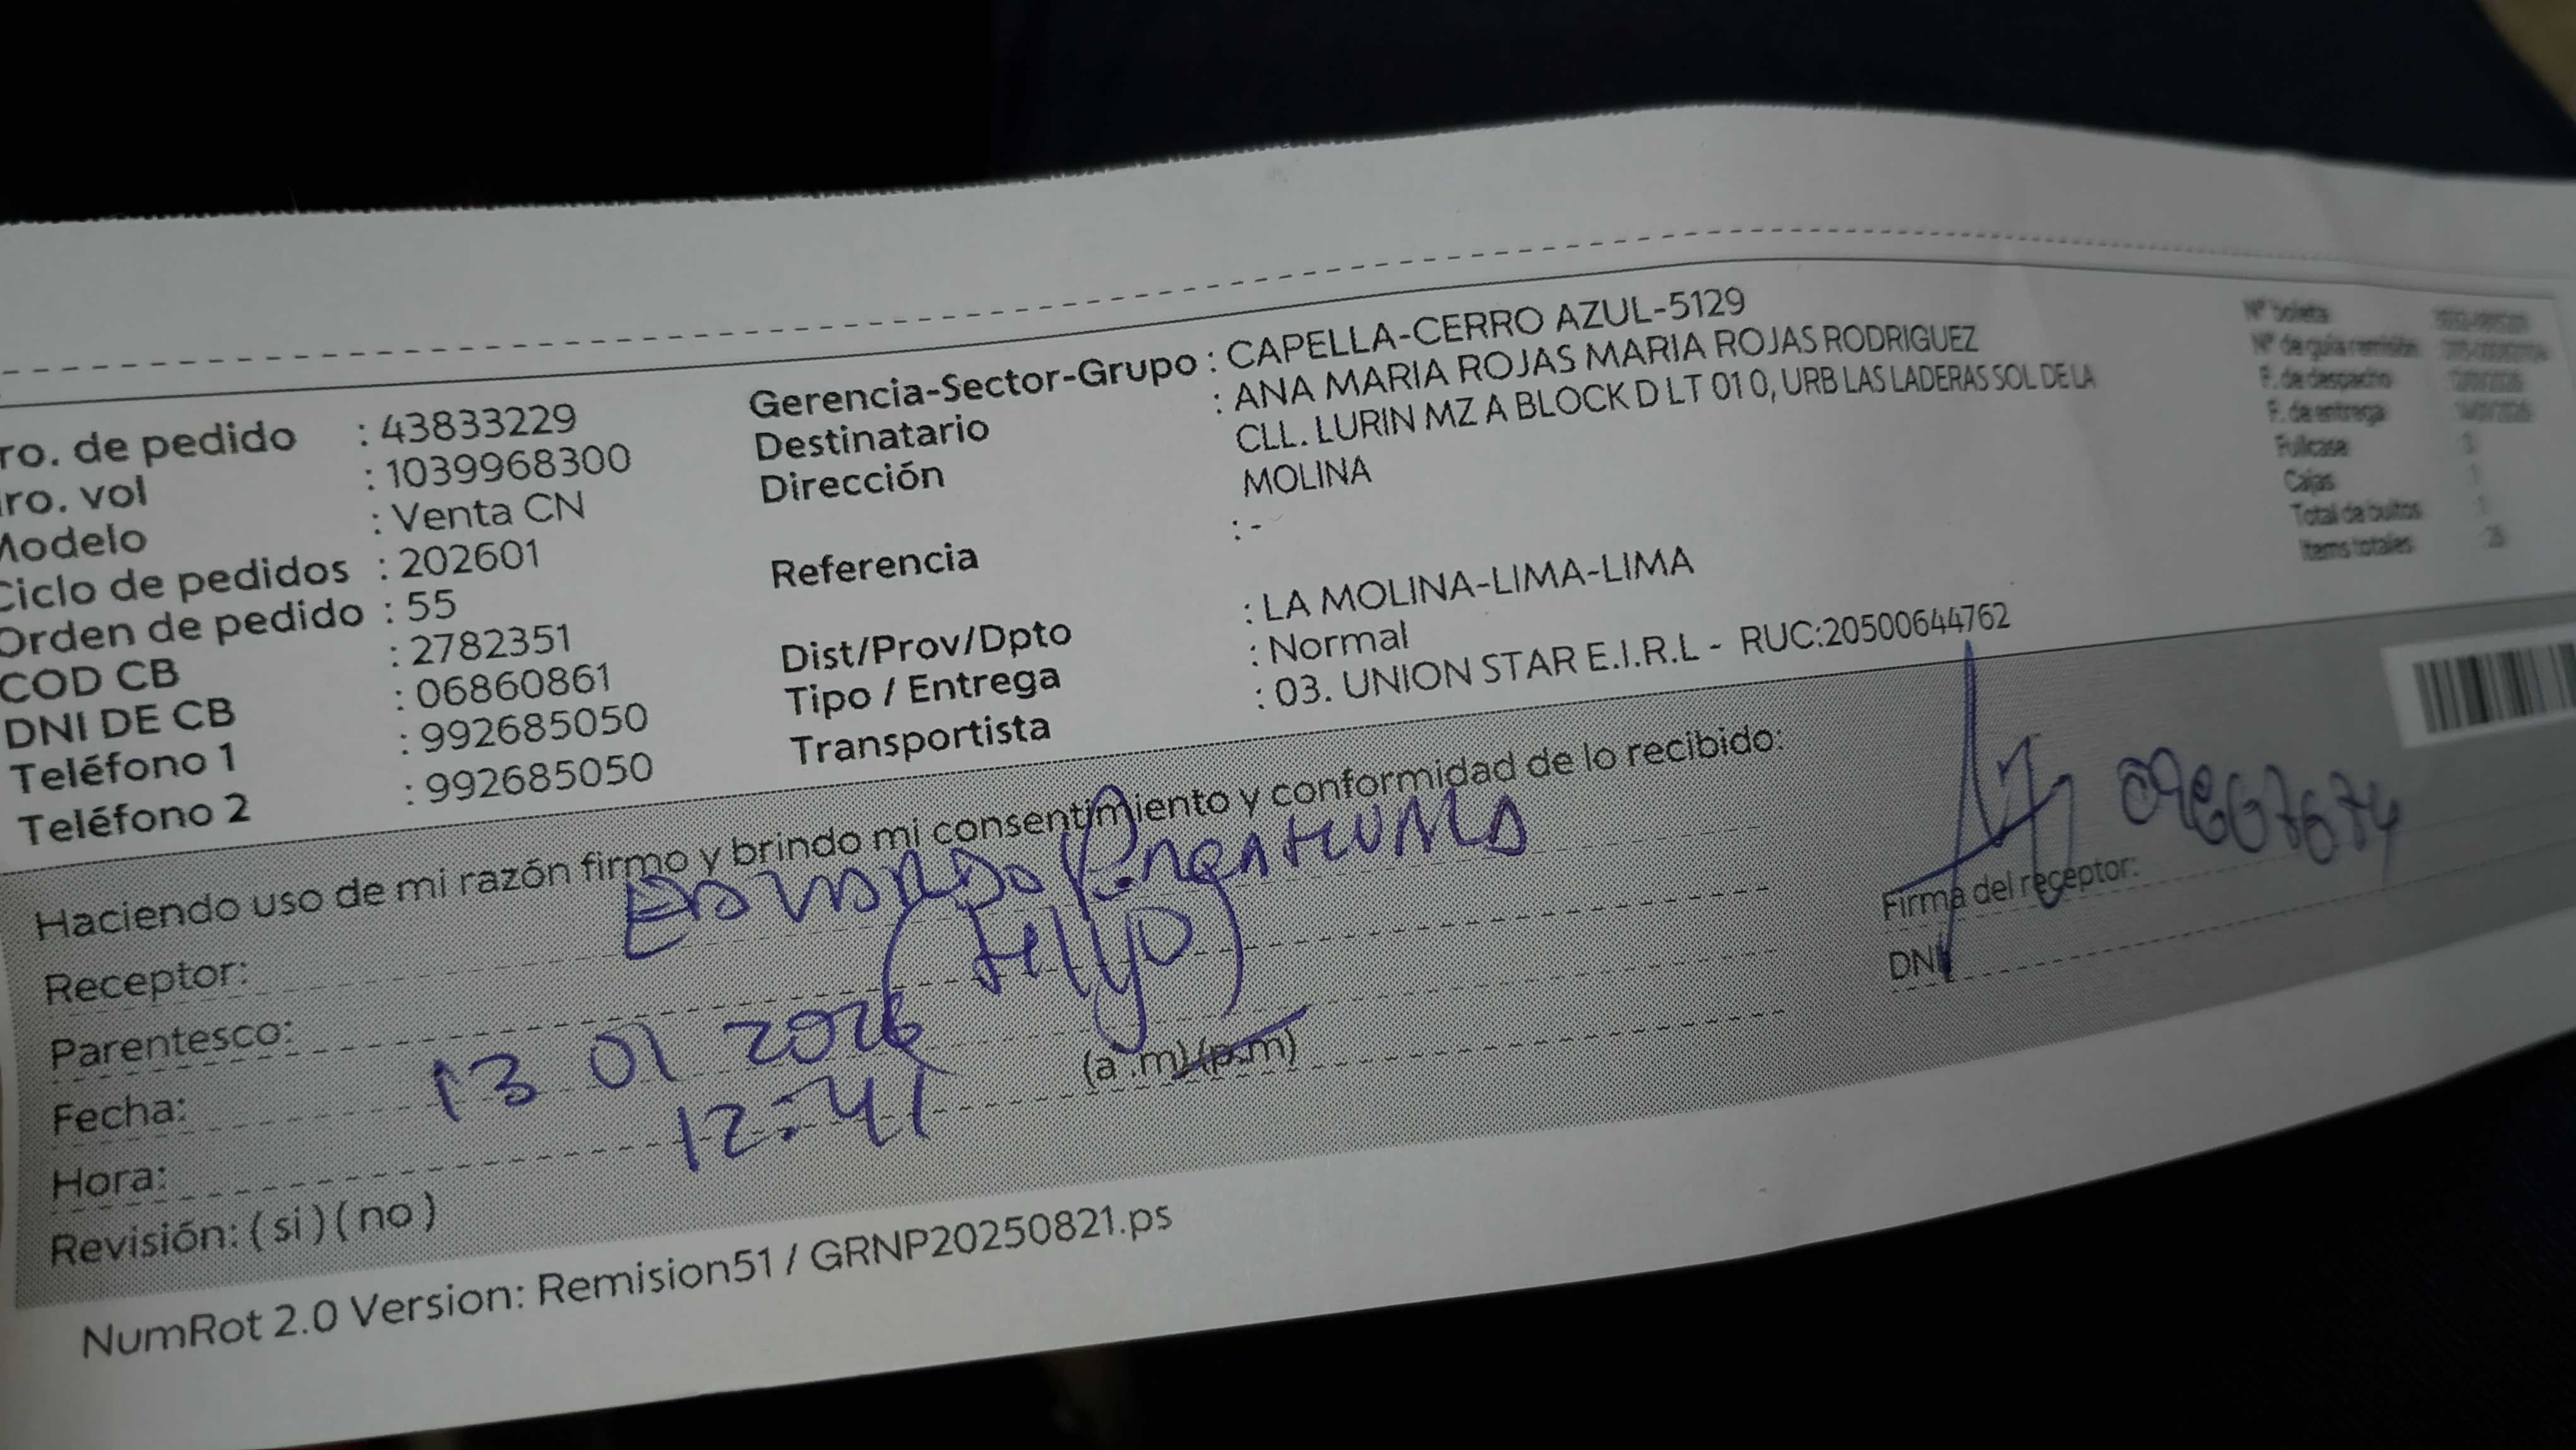 ro. de pedido : 43833229
ro. vol : 1039968300
Modelo : Venta CN
Ciclo de pedidos : 202601
Orden de pedido : 55
COD CB : 2782351
DNI DE CB : 06860861
Teléfono 1 : 992685050
Teléfono 2 : 992685050
Gerencia-Sector-Grupo : CAPELLA-CERRO AZUL-5129
Destinatario : ANA MARIA ROJAS MARIA ROJAS RODRIGUEZ
Dirección CLL. LURIN MZ A BLOCK D LT 01 0, URB LAS LADERAS SOL DE LA
MOLINA
Referencia : -
Dist/Prov/Dpto : LA MOLINA-LIMA-LIMA
Tipo / Entrega : Normal
Transportista : 03. UNION STAR E.I.R.L - RUC:20500644762
Nº boleta
Nº de guía remisión
F. de despacho
F. de entrega
Fullcase
Cajas 1
Total de bultos 1
Items totales
Haciendo uso de mi razón firmo y brindo mi consentimiento y conformidad de lo recibido:
Receptor:
Parentesco:
Fecha: 13 01 2026
Hora: 12:41 (a .m)(p.m)
Revisión: ( si ) ( no )
Firma del receptor:
DNI
NumRot 2.0 Version: Remision51 / GRNP20250821.ps